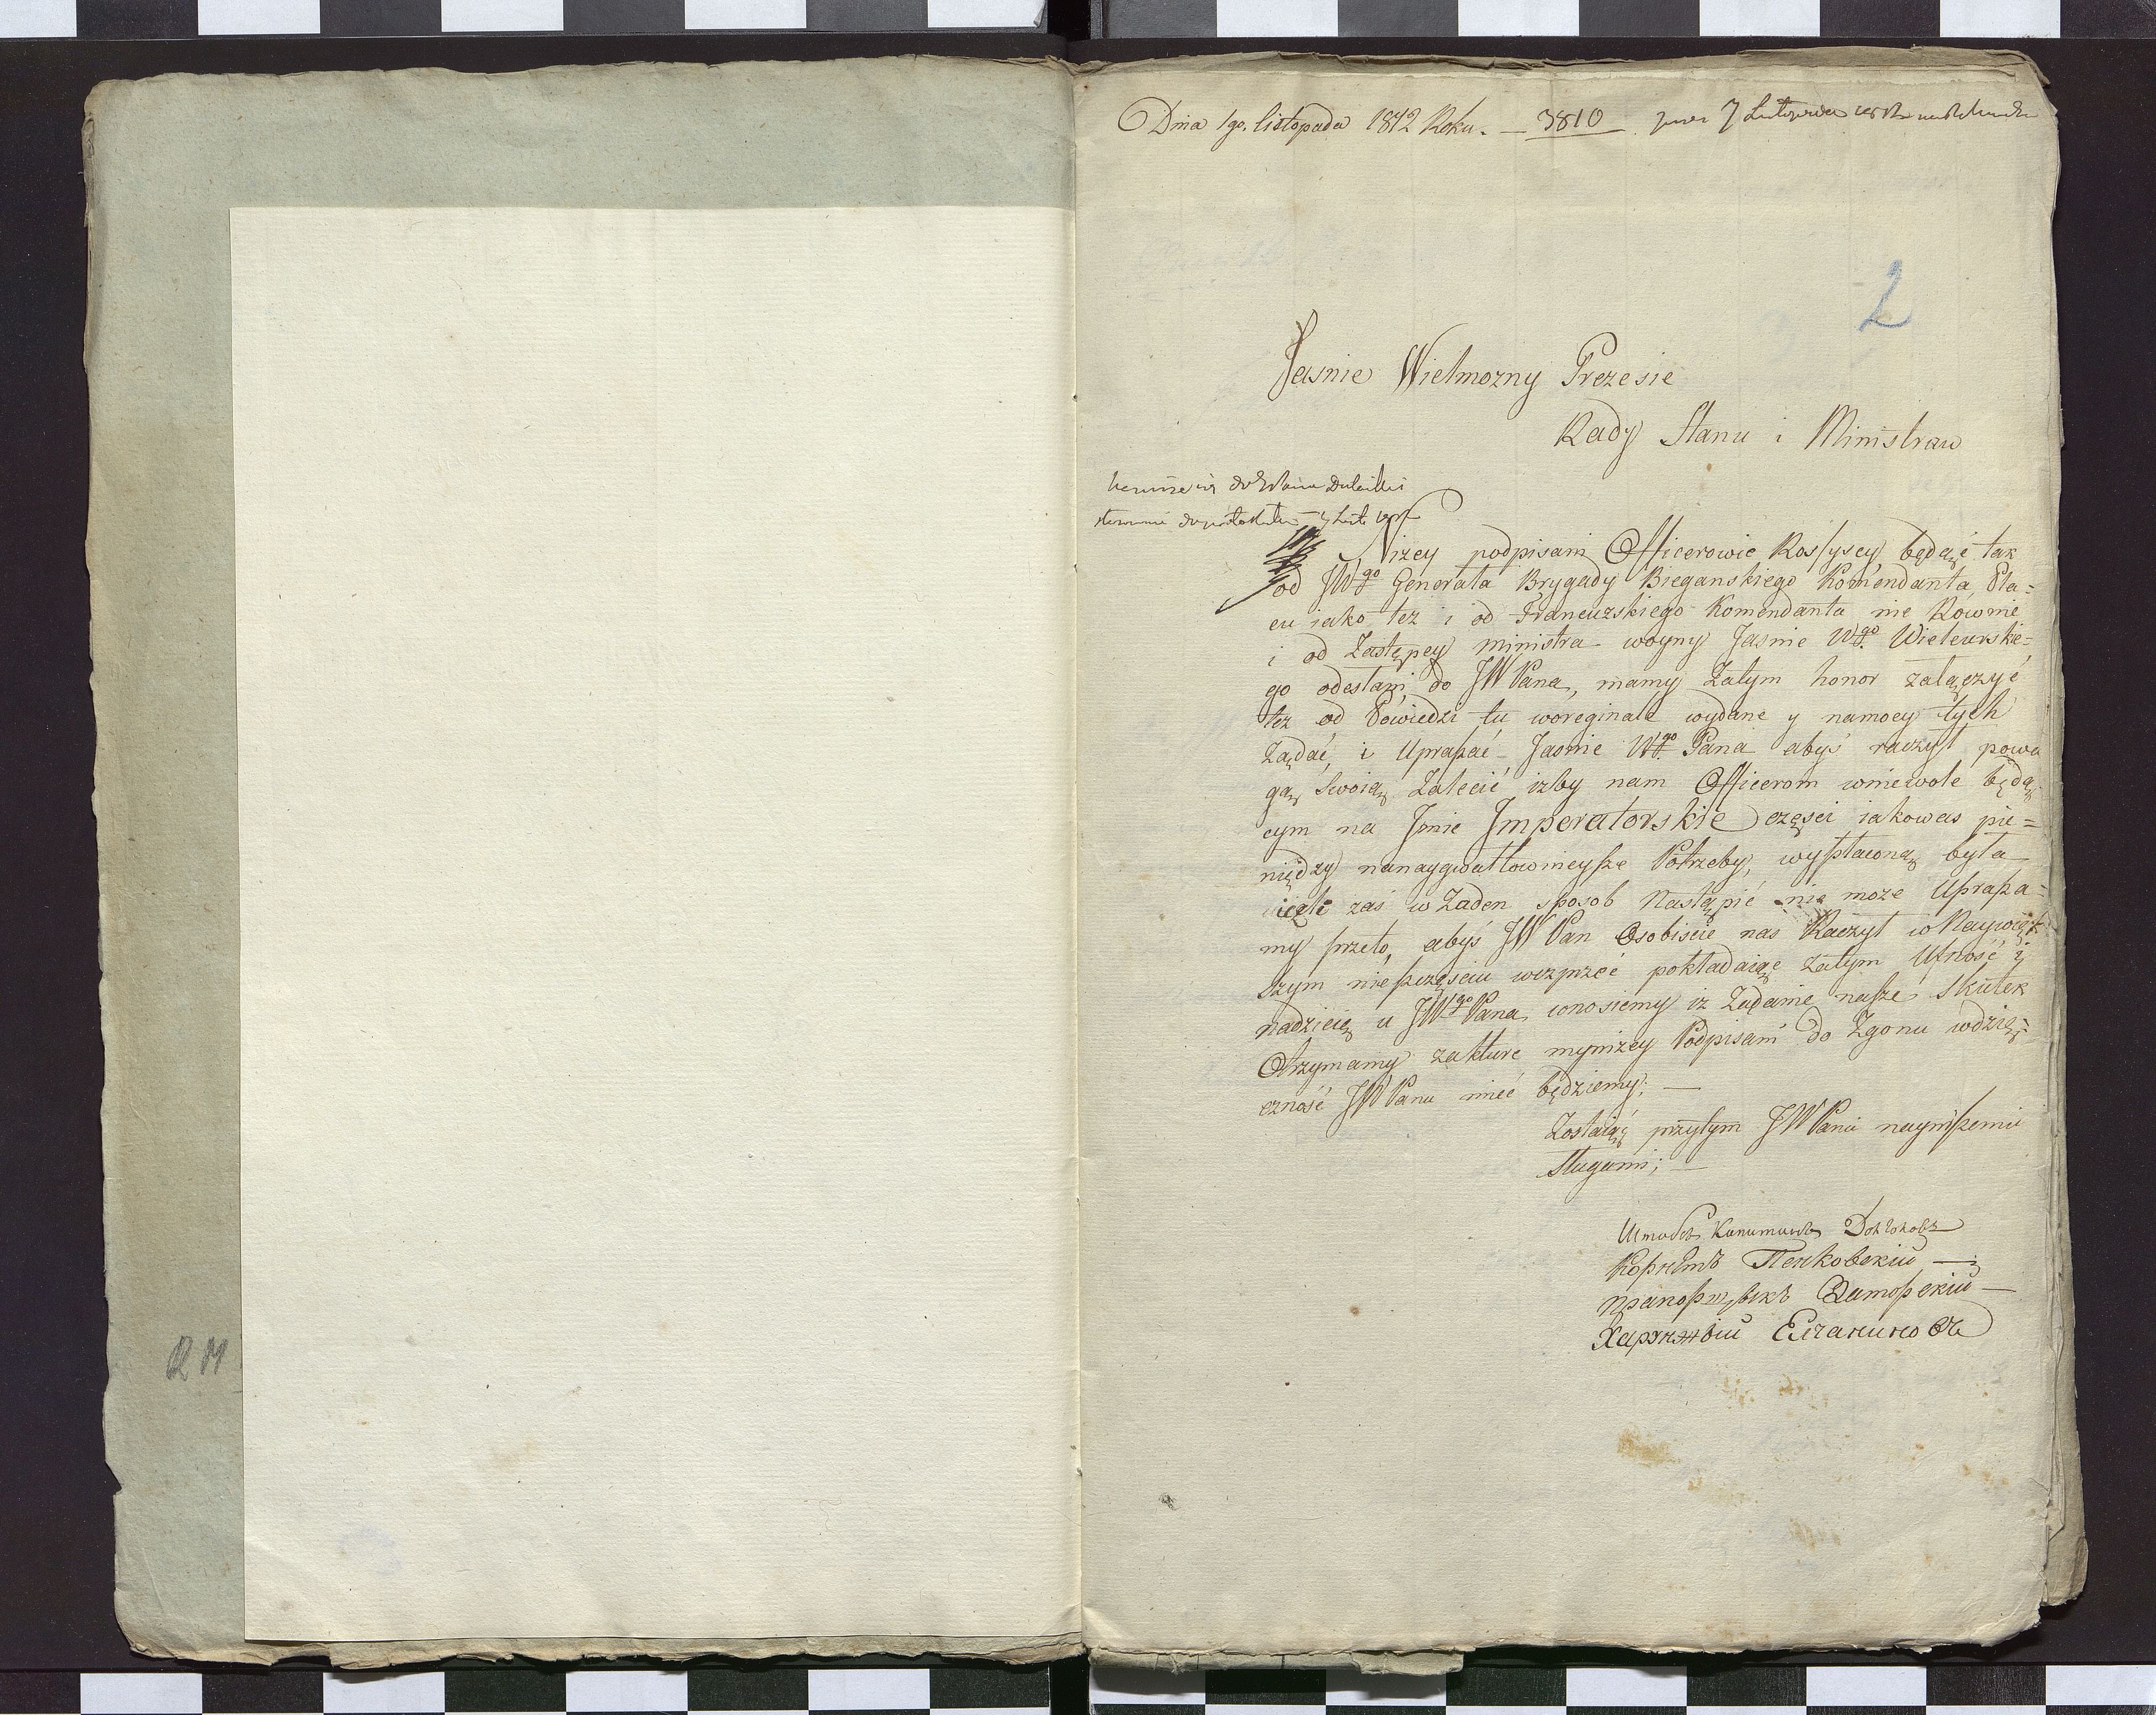 Dnia 1go. listopada 1812 Roku. — 3810
2
Jasnie Wielmozny Prezesie
Rady Stanu i Ministraw
Nizey podpisani Officerowie Rossyscy będąć tak
od JWgo Generała Brygady Bieganskiego Komendanta Pla=
cu iako tez i od Francuzskiego Komendanta nie Rownie
i od Zastępcy ministra woyny Jasnie Wgo. Wielurskie=
go odesłani do JWPana, mamy Zatym honor załączyć
tez od Powiedzi tu woreginale wydane y namocy tych
Ządać, i Upraszać Jasnie Wgo. Pana abyś raczył powa
gą Swoią Zalecić izby nam Officerom wniewole będą
cym na Jmie Jmperatorskie częsci iakowas pie=
niędzy nanaygwałtowneysze Potrzeby, wypłaconą była
zaś w Zaden sposob Nastąpić nie moze Uprasza=
my przeto, abyś JWPan Osobiscie nas Raczył w Naywięk
szym nieszczęsciu wezprzeć pokładaiąc Zatym Ufność i
nadzieię u JWgo Pana wnosiemy iz Ządanie nasze Skutek
Otrzymamy zakture mynizey Podpisani do Zgonu wdzię=
czność JWPanu mieć będziemy; —
Zostaiąć przytym JWPana nayniszemi
Sługami; —
Штабсъ Капитанъ
Корнетъ Пенковскiй —
Прапорщикъ Заторскiй —
Харунжiй Елчаниновъ
R M